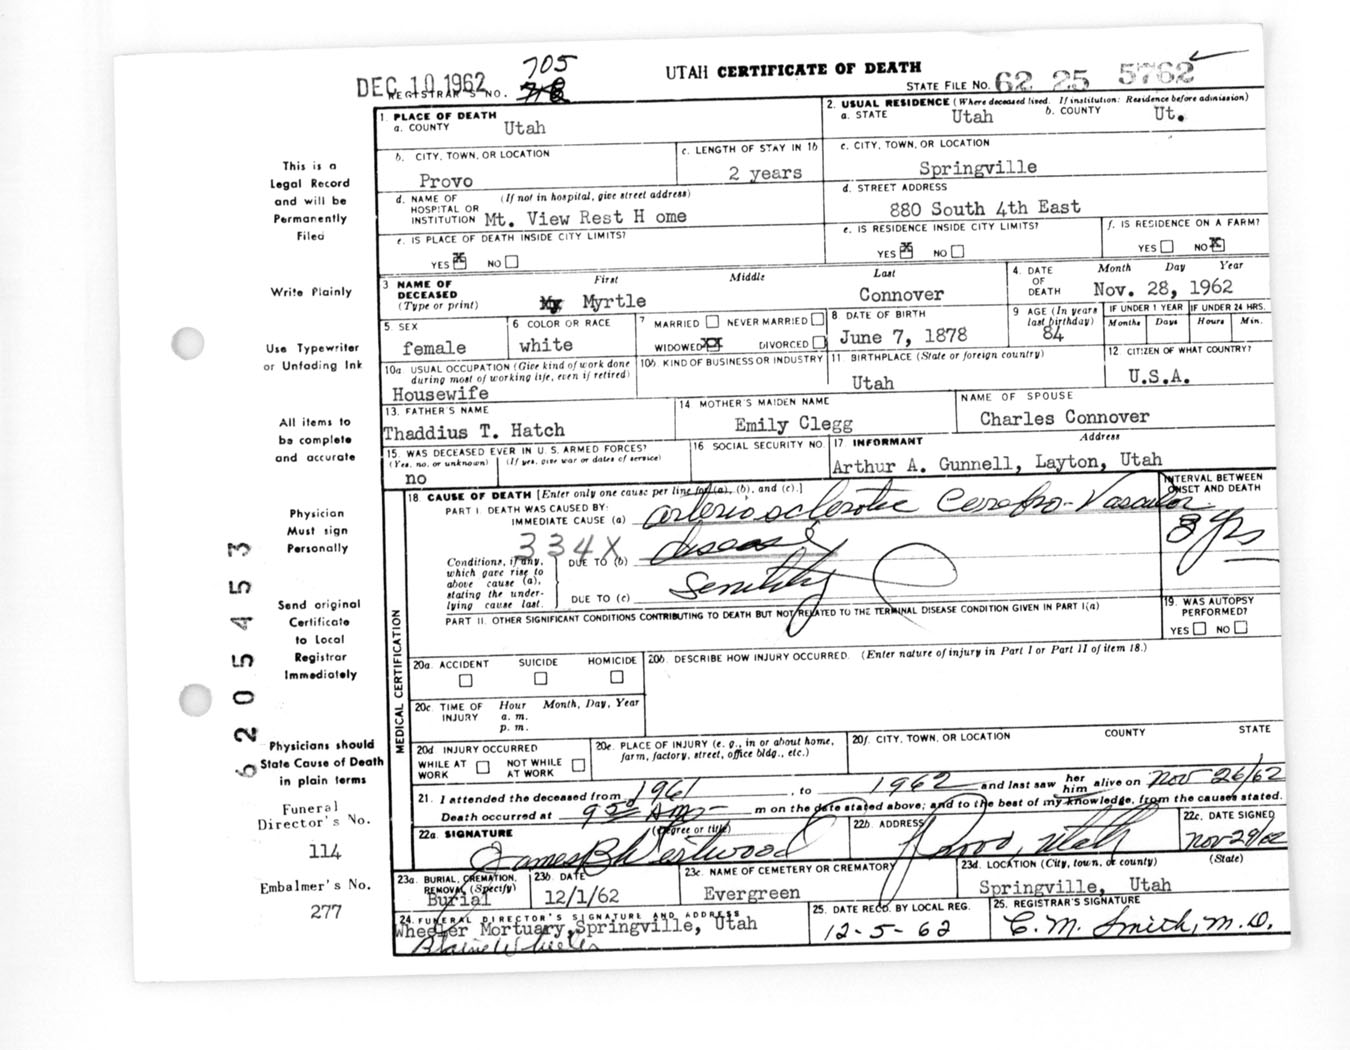 DEC 10 1962
705
UTAH CERTIFICATE OF DEATH
REGISTRAR'S NO. 718
STATE FILE NO. 62 25 5762
This is a
Legal Record
and will be
Permanently
Filed
Write Plainly
Use Typewriter
or Unfading Ink
All items to
be complete
and accurate
Physician
Must sign
Personally
Send original
Certificate
to Local
Registrar
Immediately
Physicians should
State Cause of Death
in plain terms
Funeral
Director's No.
114
Embalmer's No.
277
6205453
1. PLACE OF DEATH
a. COUNTY Utah
2. USUAL RESIDENCE (Where deceased lived. If institution: Residence before admission)
a. STATE Utah b. COUNTY Ut.
b. CITY, TOWN, OR LOCATION
Provo
c. LENGTH OF STAY IN 1b
2 years
c. CITY, TOWN, OR LOCATION
Springville
d. NAME OF HOSPITAL OR INSTITUTION (If not in hospital, give street address)
Mt. View Rest H ome
d. STREET ADDRESS
880 South 4th East
e. IS PLACE OF DEATH INSIDE CITY LIMITS?
YES X NO
e. IS RESIDENCE INSIDE CITY LIMITS?
YES X NO
f. IS RESIDENCE ON A FARM?
YES NO X
3 NAME OF DECEASED (Type or print)
First Middle Last
Myrtle Connover
4. DATE OF DEATH Month Day Year
Nov. 28, 1962
5. SEX
female
6 COLOR OR RACE
white
7 MARRIED NEVER MARRIED
WIDOWED XX DIVORCED
8 DATE OF BIRTH
June 7, 1878
9 AGE (In years last birthday)
84
IF UNDER 1 YEAR
Months Days
IF UNDER 24 HRS.
Hours Min.
10a USUAL OCCUPATION (Give kind of work done during most of working life, even if retired)
Housewife
10b KIND OF BUSINESS OR INDUSTRY
11 BIRTHPLACE (State or foreign country)
Utah
12 CITIZEN OF WHAT COUNTRY?
U.S.A.
13. FATHER'S NAME
Thaddius T. Hatch
14 MOTHER'S MAIDEN NAME
Emily Clegg
NAME OF SPOUSE
Charles Connover
15. WAS DECEASED EVER IN U. S. ARMED FORCES?
(Yes, no, or unknown) (If yes, give war or dates of service)
no
16 SOCIAL SECURITY NO.
17 INFORMANT Address
Arthur A. Gunnell, Layton, Utah
MEDICAL CERTIFICATION
18 CAUSE OF DEATH [Enter only one cause per line for (a), (b), and (c).]
INTERVAL BETWEEN ONSET AND DEATH
PART I. DEATH WAS CAUSED BY:
IMMEDIATE CAUSE (a) arteriosclerotic Cerebro-Vascular
8 yrs
334X
disease
Conditions, if any, which gave rise to above cause (a), stating the underlying cause last.
DUE TO (b)
Senility
DUE TO (c)
PART II. OTHER SIGNIFICANT CONDITIONS CONTRIBUTING TO DEATH BUT NOT RELATED TO THE TERMINAL DISEASE CONDITION GIVEN IN PART I(a)
19. WAS AUTOPSY PERFORMED?
YES NO
20a. ACCIDENT SUICIDE HOMICIDE
20b. DESCRIBE HOW INJURY OCCURRED. (Enter nature of injury in Part I or Part II of item 18.)
20c TIME OF INJURY Hour Month, Day, Year
a. m.
p. m.
20d INJURY OCCURRED
WHILE AT WORK NOT WHILE AT WORK
20e. PLACE OF INJURY (e. g., in or about home, farm, factory, street, office bldg., etc.)
20f. CITY, TOWN, OR LOCATION COUNTY STATE
21. I attended the deceased from 1961, to 1962 and last saw her him alive on Nov 26/62
Death occurred at 9 50 AM m on the date stated above; and to the best of my knowledge, from the causes stated.
22a. SIGNATURE (Degree or title)
James B Westwood
22b. ADDRESS
Provo, Utah
22c. DATE SIGNED
Nov 29/62
23a. BURIAL, CREMATION, REMOVAL (Specify)
Burial
23b. DATE
12/1/62
23c. NAME OF CEMETERY OR CREMATORY
Evergreen
23d. LOCATION (City, town, or county) (State)
Springville, Utah
24. FUNERAL DIRECTOR'S SIGNATURE AND ADDRESS
Wheeler Mortuary, Springville, Utah
Blaine Wheeler
25. DATE RECD. BY LOCAL REG.
12-5-62
25. REGISTRAR'S SIGNATURE
C. M. Smith, M.D.